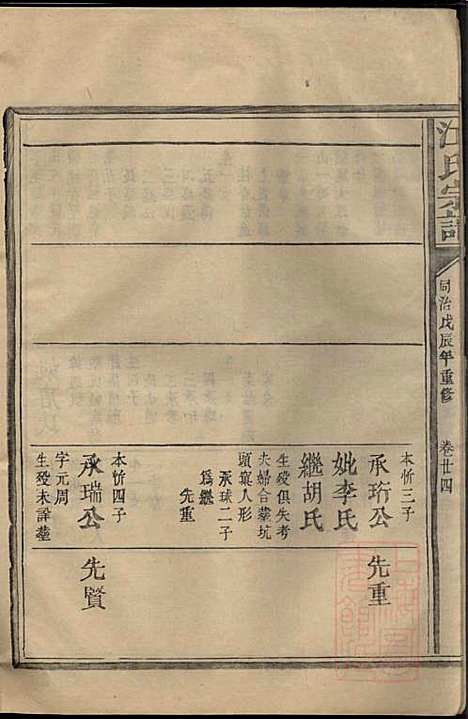 江氏宗譜
同治戊辰年重修
卷廿四
本忻三子
承珩公
妣李氏
繼胡氏
生殁俱失考
夫婦合塟坑
頭窠人形
承球二子
先重
爲繼
先重
本忻四子
承瑞公
字元周
生殁未詳塟
先賢